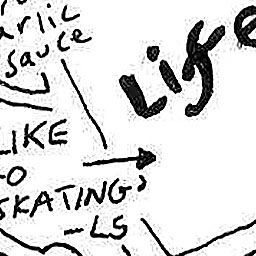 arlic
sauce
Life
LIKE
TO
SKATING?
-LS